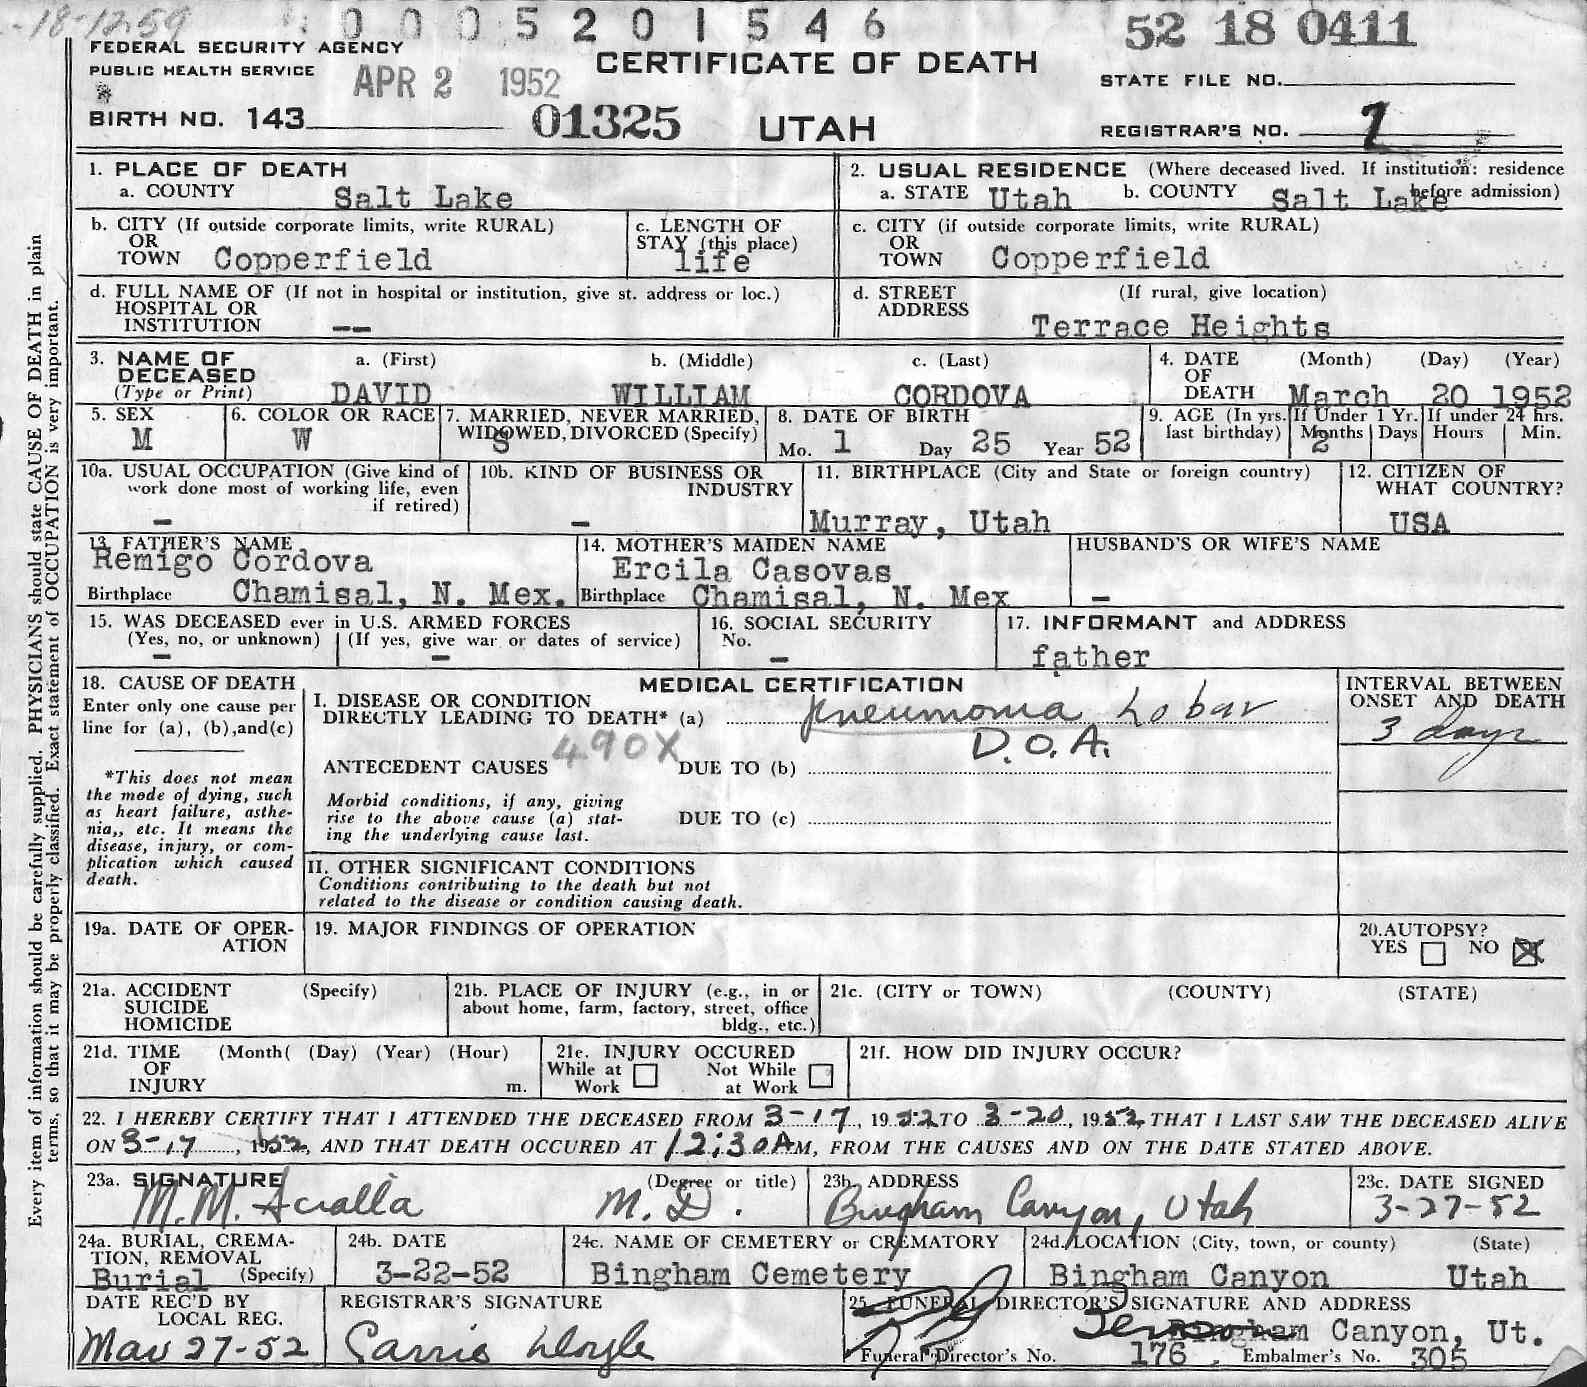 -18-12-59
0 0 0 5 2 0 1 5 4 6
52 18 0411
FEDERAL SECURITY AGENCY
PUBLIC HEALTH SERVICE
APR 2 1952
CERTIFICATE OF DEATH
STATE FILE NO.
BIRTH NO. 143
01325
UTAH
REGISTRAR'S NO. 7
Every item of information should be carefully supplied. PHYSICIANS should state CAUSE OF DEATH in plain
terms, so that it may be properly classified. Exact statement of OCCUPATION is very important.
1. PLACE OF DEATH
a. COUNTY Salt Lake
2. USUAL RESIDENCE (Where deceased lived. If institution: residence
before admission)
a. STATE Utah b. COUNTY Salt Lake
b. CITY (If outside corporate limits, write RURAL)
OR
TOWN Copperfield
c. LENGTH OF
STAY (this place)
life
c. CITY (if outside corporate limits, write RURAL)
OR
TOWN Copperfield
d. FULL NAME OF (If not in hospital or institution, give st. address or loc.)
HOSPITAL OR
INSTITUTION --
d. STREET (If rural, give location)
ADDRESS
Terrace Heights
3. NAME OF
DECEASED
(Type or Print)
a. (First) b. (Middle) c. (Last)
DAVID WILLIAM CORDOVA
4. DATE (Month) (Day) (Year)
OF
DEATH March 20 1952
5. SEX
M
6. COLOR OR RACE
W
7. MARRIED, NEVER MARRIED,
WIDOWED, DIVORCED (Specify)
S
8. DATE OF BIRTH
Mo. 1 Day 25 Year 52
9. AGE (In yrs.
last birthday)
If Under 1 Yr.
Months Days
2
If under 24 hrs.
Hours Min.
10a. USUAL OCCUPATION (Give kind of
work done most of working life, even
if retired)
-
10b. KIND OF BUSINESS OR
INDUSTRY
-
11. BIRTHPLACE (City and State or foreign country)
Murray, Utah
12. CITIZEN OF
WHAT COUNTRY?
USA
13. FATHER'S NAME
Remigo Cordova
Birthplace Chamisal, N. Mex.
14. MOTHER'S MAIDEN NAME
Ercila Casovas
Birthplace Chamisal, N. Mex
HUSBAND'S OR WIFE'S NAME
-
15. WAS DECEASED ever in U.S. ARMED FORCES
(Yes, no, or unknown) (If yes, give war or dates of service)
- -
16. SOCIAL SECURITY
No.
-
17. INFORMANT and ADDRESS
father
18. CAUSE OF DEATH
Enter only one cause per
line for (a), (b),and(c)
*This does not mean
the mode of dying, such
as heart failure, asthe-
nia,, etc. It means the
disease, injury, or com-
plication which caused
death.
MEDICAL CERTIFICATION
I. DISEASE OR CONDITION
DIRECTLY LEADING TO DEATH* (a) Pneumonia Lobar
490X
D.O.A.
ANTECEDENT CAUSES DUE TO (b)
Morbid conditions, if any, giving
rise to the above cause (a) stat-
ing the underlying cause last.
DUE TO (c)
INTERVAL BETWEEN
ONSET AND DEATH
3 days
II. OTHER SIGNIFICANT CONDITIONS
Conditions contributing to the death but not
related to the disease or condition causing death.
19a. DATE OF OPER-
ATION
19. MAJOR FINDINGS OF OPERATION
20.AUTOPSY?
YES NO X
21a. ACCIDENT (Specify)
SUICIDE
HOMICIDE
21b. PLACE OF INJURY (e.g., in or
about home, farm, factory, street, office
bldg., etc.)
21c. (CITY or TOWN) (COUNTY) (STATE)
21d. TIME (Month( (Day) (Year) (Hour)
OF
INJURY m.
21e. INJURY OCCURED
While at Not While
Work at Work
21f. HOW DID INJURY OCCUR?
22. I HEREBY CERTIFY THAT I ATTENDED THE DECEASED FROM 3-17, 1952 TO 3-20, 1952 THAT I LAST SAW THE DECEASED ALIVE
ON 3-17, 1952, AND THAT DEATH OCCURED AT 12:30 AM, FROM THE CAUSES AND ON THE DATE STATED ABOVE.
23a. SIGNATURE (Degree or title)
M.M. M.D.
23b. ADDRESS
Bingham Canyon, Utah
23c. DATE SIGNED
3-27-52
24a. BURIAL, CREMA-
TION, REMOVAL
Burial (Specify)
24b. DATE
3-22-52
24c. NAME OF CEMETERY or CREMATORY
Bingham Cemetery
24d. LOCATION (City, town, or county) (State)
Bingham Canyon Utah
DATE REC'D BY
LOCAL REG.
Mar 27-52
REGISTRAR'S SIGNATURE
25. FUNERAL DIRECTOR'S SIGNATURE AND ADDRESS
Bingham Canyon, Ut.
Funeral Director's No. 176. Embalmer's No. 305